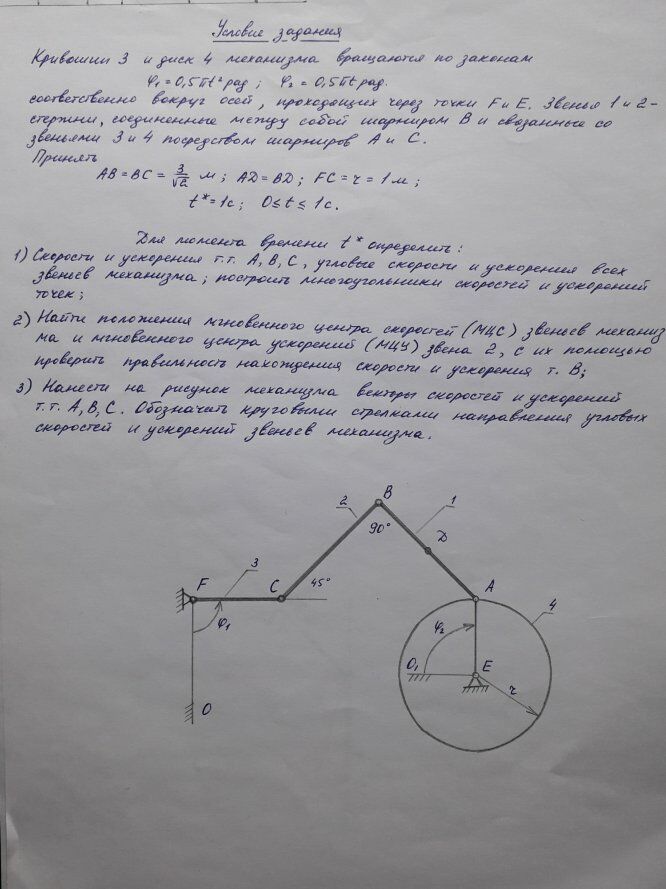 Условие задания
Кривошип 3 и диск 4 механизма вращаются по законам
φ₁ = 0,5πt² рад ; φ₂ = 0,5πt рад.
соответственно вокруг осей, проходящих через точки F и E. Звенья 1 и 2 -
стержни, соединенные между собой шарниром B и связанные со
звеньями 3 и 4 посредством шарниров A и C.
Принять
AB = BC = 3/√2 м ; AD = BD ; FC = r = 1 м ;
t* = 1 c ; 0 ≤ t ≤ 1 c.
Для момента времени t* определить :
1) Скорости и ускорения т.т. A, B, C, угловые скорости и ускорения всех
звеньев механизма ; построить многоугольники скоростей и ускорений
точек ;
2) Найти положения мгновенного центра скоростей (МЦС) звеньев механиз
ма и мгновенного центра ускорений (МЦУ) звена 2, с их помощью
проверить правильность нахождения скорости и ускорения т. B ;
3) Нанести на рисунок механизма векторы скоростей и ускорений
т.т. A, B, C. Обозначить круговыми стрелками направления угловых
скоростей и ускорений звеньев механизма.
B
2
1
90°
D
3
F
C
45°
A
4
φ₁
φ₂
O₁
E
r
O